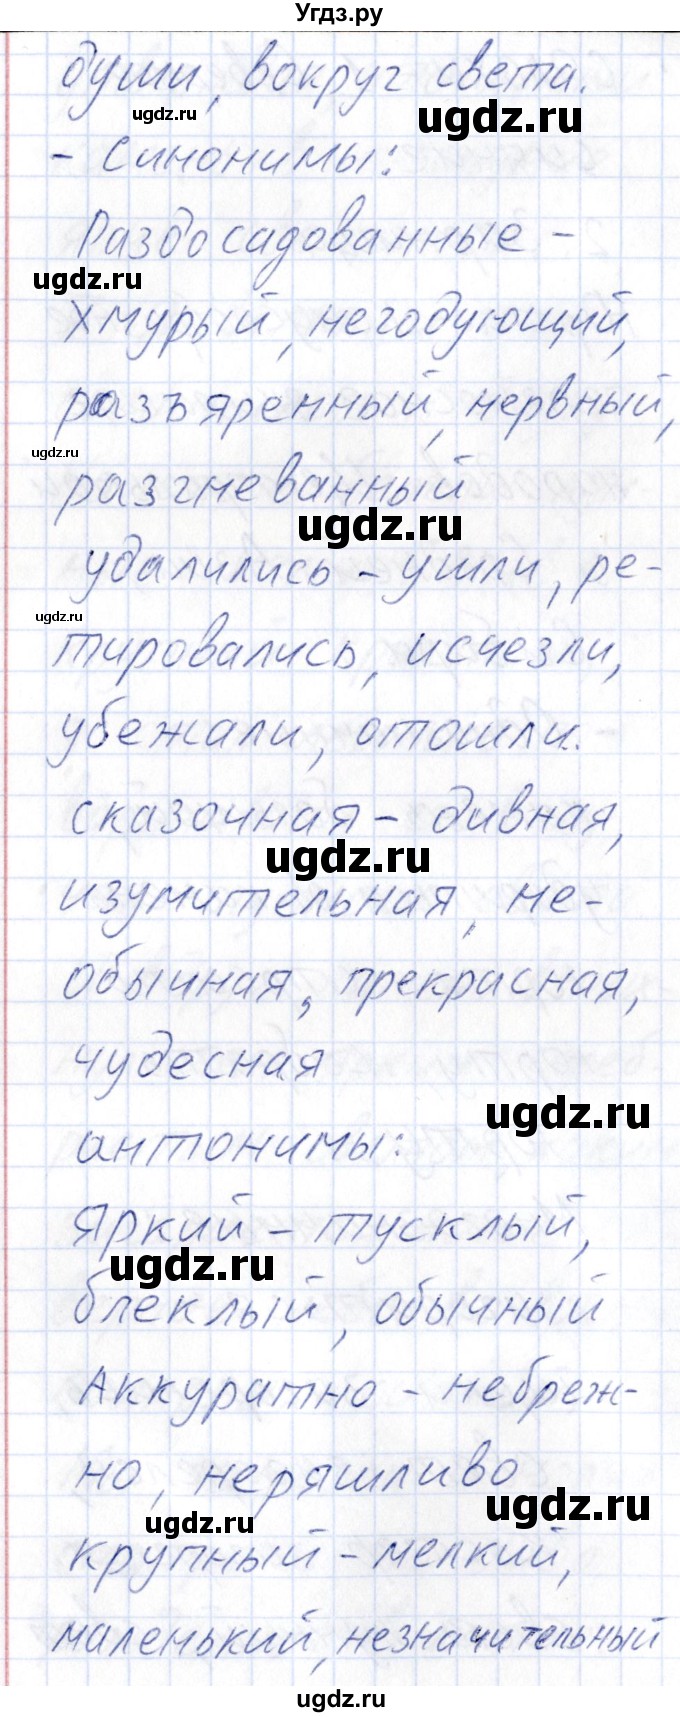 Угдз.ру
души, вокруг света.
ugdz.ru
ugdz.ru
- синонимы:
Раздосадованные -
ugdz.ru
Хмурый, негодующий,
разъяренный, нервный,
ugdz.ru
разгневанный
ugdz.ru
удалились - ушли, ре-
ugdz.ru
тировались, исчезли,
убежали, отошли.
сказочная - дивная,
ugdz.ru
изумительная, не-
обычная, прекрасная,
чудесная
ugdz.ru
антонимы:
Яркий - тусклый,
ugdz.ru
блеклый, обычный
Аккуратно - небреж-
но, неряшливо
ugdz.ru
ugdz.ru
крупный - мелкий,
маленький, незначительный
ugdz.ru